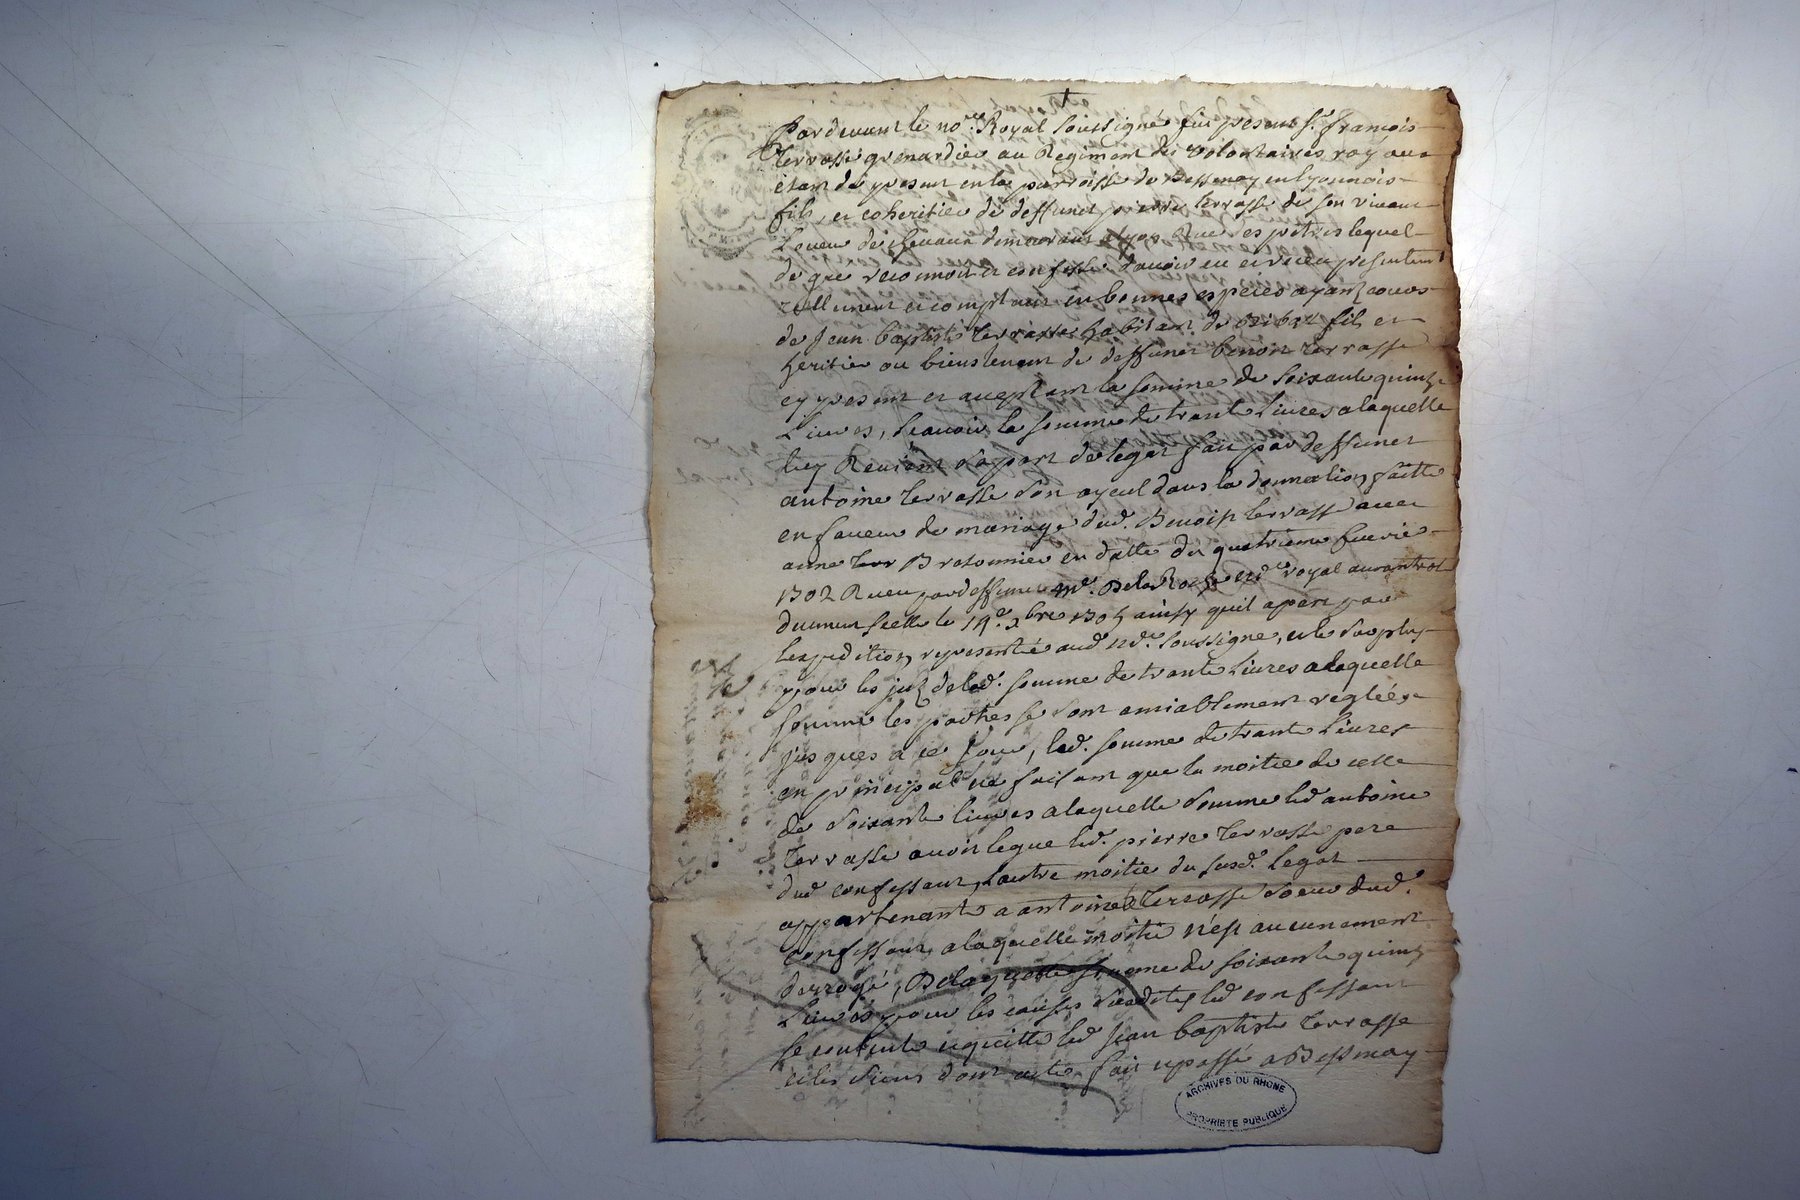 Pardevant le no.re Royal soussigné fut present Sr. francois
terrasse grenardier au Regiment des volontaires royaux
etant de present en la parroisse de Bessenay en lyonnois
fils, et coheritier de deffunct pierre terrasse de son vivant
Loueur de chevaux demeurant a lyon lequel
de gre reconnoit et confesse d'avoir eu et receu presentement
reellement et comptant en bonnes especes ayant cours
de Jean baptiste terrasse habitant de fils et
heritier ou bienstenant de deffunct benoit terrasse
cy present et aceptant la somme de soixante quinze
Livres, scavoir la somme de trante Livres a laquelle
luy Revient sa part de legat fait par deffunct
antoine terrasse son ayeul dans la donnation faitte
en faveur de mariage dud. Benoist terrasse avec
anne Bretonnier en datte du quatrieme fevrier
1702 Receu par deffunct me. Delaroche no.re royal
duement scellé le 14e. xbre 1705 ainsy quil apert par
lexpedition representée aud. no.re soussigne, et le surplus
pour les jnt delad. somme de trante Livres a laquelle
somme les parties se sont amiablement reglées
jusques a ce Jour, lad. somme de trante Livres
en principal ne faisant que la moitié de celle
de soixante livres a laquelle somme led. antoine
terrasse avoit legué led. pierre terrasse pere
dud. confessant, lautre moitié du susd. legat
appartenante a antoine terrasse soeur dud.
confessant, a laquelle moitié n'est aucunement
derrogé, De laquelle somme de soixante quinze
Livres pour les causes susdites led. confessant
se contente et quitte led. Jean baptiste terrasse
et les siens dont acte fait et passé a Bessenay
ARCHIVES DU RHONE
PROPRIETE PUBLIQUE